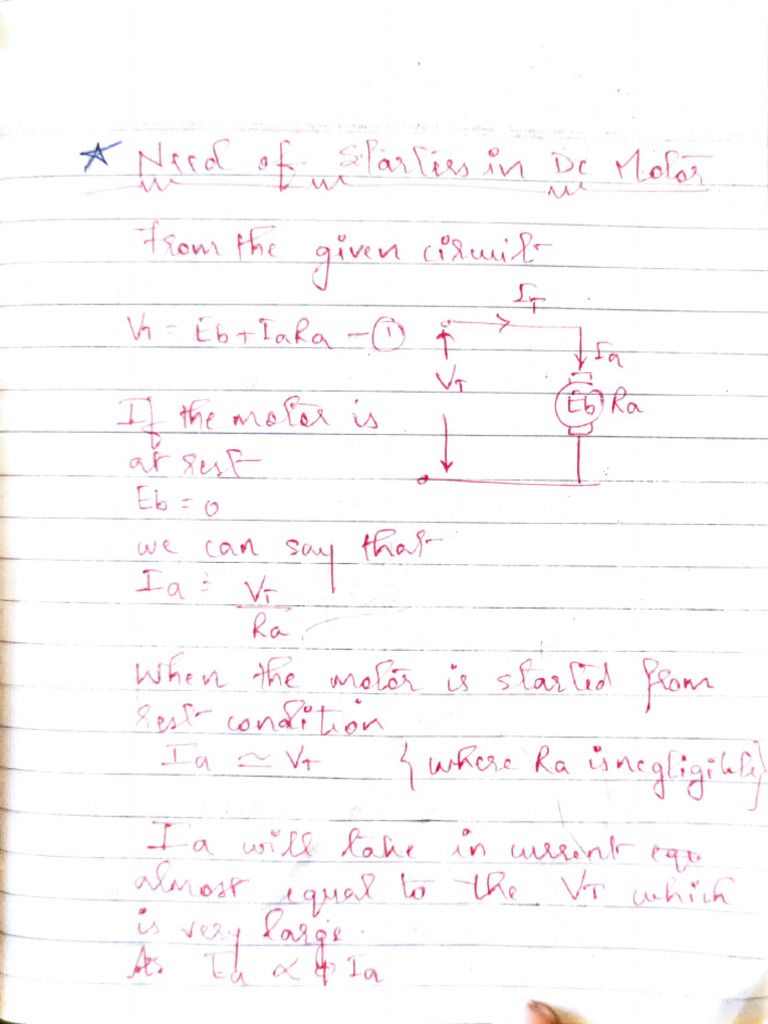 Need of Starters in Dc Motor
from the given circuit
VT = Eb + IaRa - ①
IT
Ia
VT
Eb Ra
If the motor is
at rest
Eb = 0
we can say that
Ia = VT
Ra
When the motor is started from
rest condition
Ia ≃ VT { where Ra is negligible }
Ia will take in current equ
almost equal to the VT which
is very large.
As Ta ∝ φ Ia